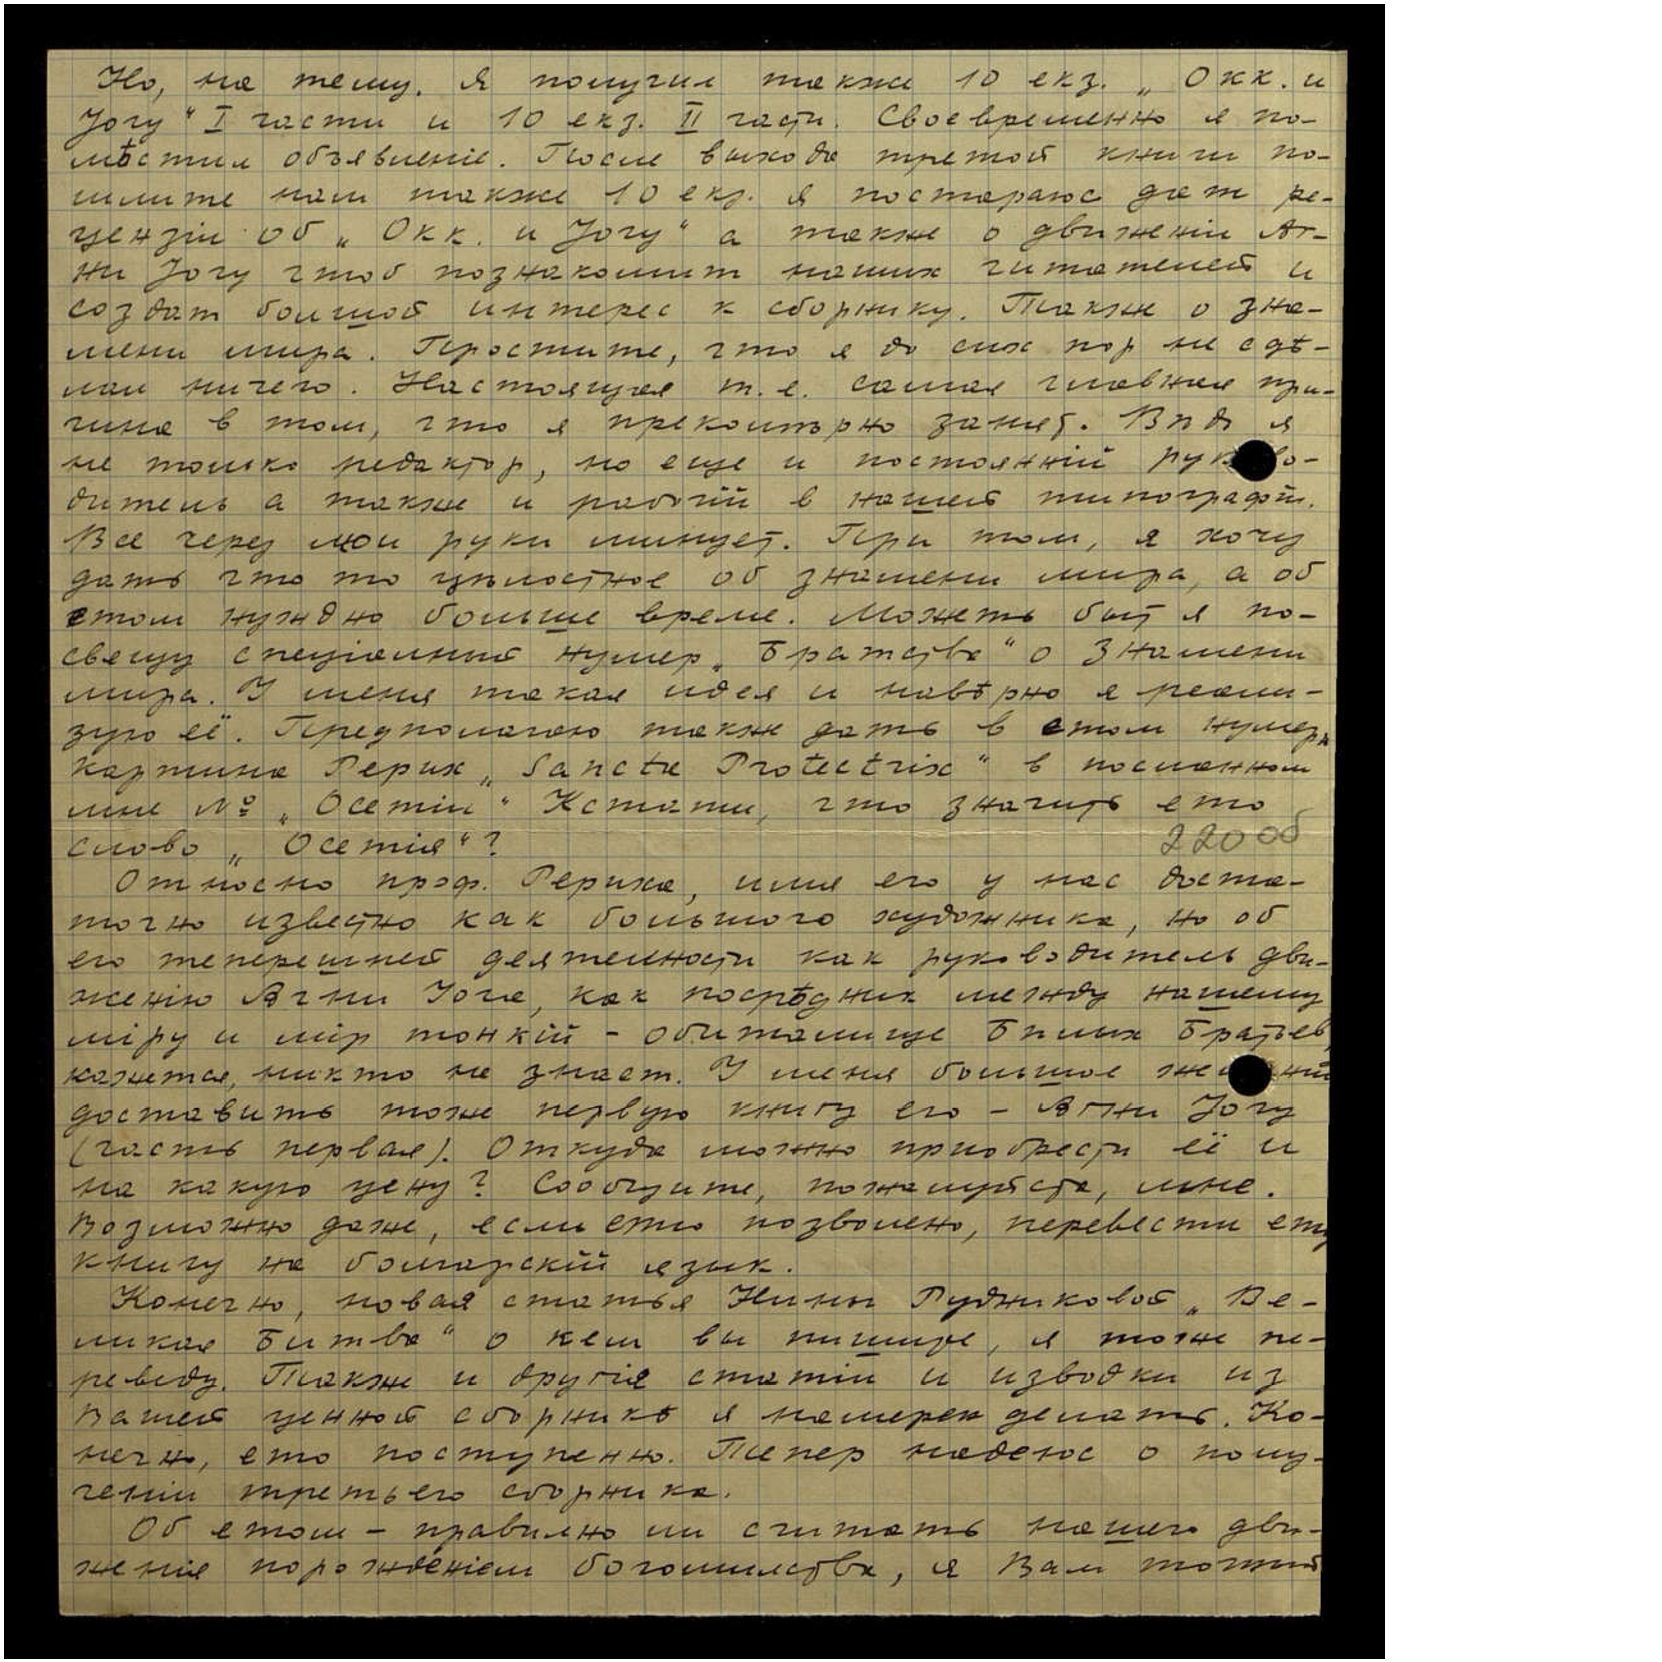 Но, на тему. Я получил также 10 екз. „Окк. и
Јогу“ I части и 10 екз. II части. Своевременно я по-
мѣстил объявленіе. После выхода третой книги по-
шлите нам также 10 екз. Я постараюс дат ре-
цензіи об „Окк. и Јогу“ а также о движеніи Аг-
ни Јогу чтоб познакомит наших читателей и
создат болшой интерес к сборнику. Такж о зна-
мени мира. Простите, что я до сих пор не сдѣ-
лал ничего. Настоящая т.е. самая главная при-
чина в том, что я прекомѣрно занят. Вѣдь я
не толко редактор, но еще и постоянній руково-
дитель а также и рабочій в нашей типографіи.
Все через мои руки минует. При том, я хочу
дать что то цѣлостное об знамени мира, а об
етом нуждно больше време. Можеть быт я по-
свещу специалный нумер „Братства“ о Знамени
мира. У меня такая идея и навѣрно я реали-
зую её. Предполагаю такж дать в етом нумерѣ
картина Рерих „Sancta Protectrix“ в посланном
мне № „Осетіи“ Кстати, что значить ето
слово „Осетія“?
220 об
Относно проф. Рериха, имя его у нас доста-
точно известно как большого художника, но об
его теперешней деятелности как руководитель дви-
женію Агни Јога, как посрѣдник между нашему
міру и мір тонкій - обиталище Белих Братьев,
кажется, никто не знает. У меня большое
доставить тоже первую книгу его - Агни Јогу
(часть первая). Откуда можно приобрести её и
на какую цену? Сообщите, пожалуйста, мне.
Возможно даже, если ето позволено, перевести ету
книгу на болгарскій язик.
Конечно, новая статья Нины Рудниковой „Ве-
ликая Битва“ о кем ви пишите, я тоже пе-
реведу. Также и другія статіи и изводки из
Вашей ценной сборникѣ я намерен делать. Ко-
нечно, ето поступенно. Тепер надеюс о полу-
ченіи третьего сборника.
Об етом - правилно ли считать нашего дви-
женія порожденіем богомилства, я Вам